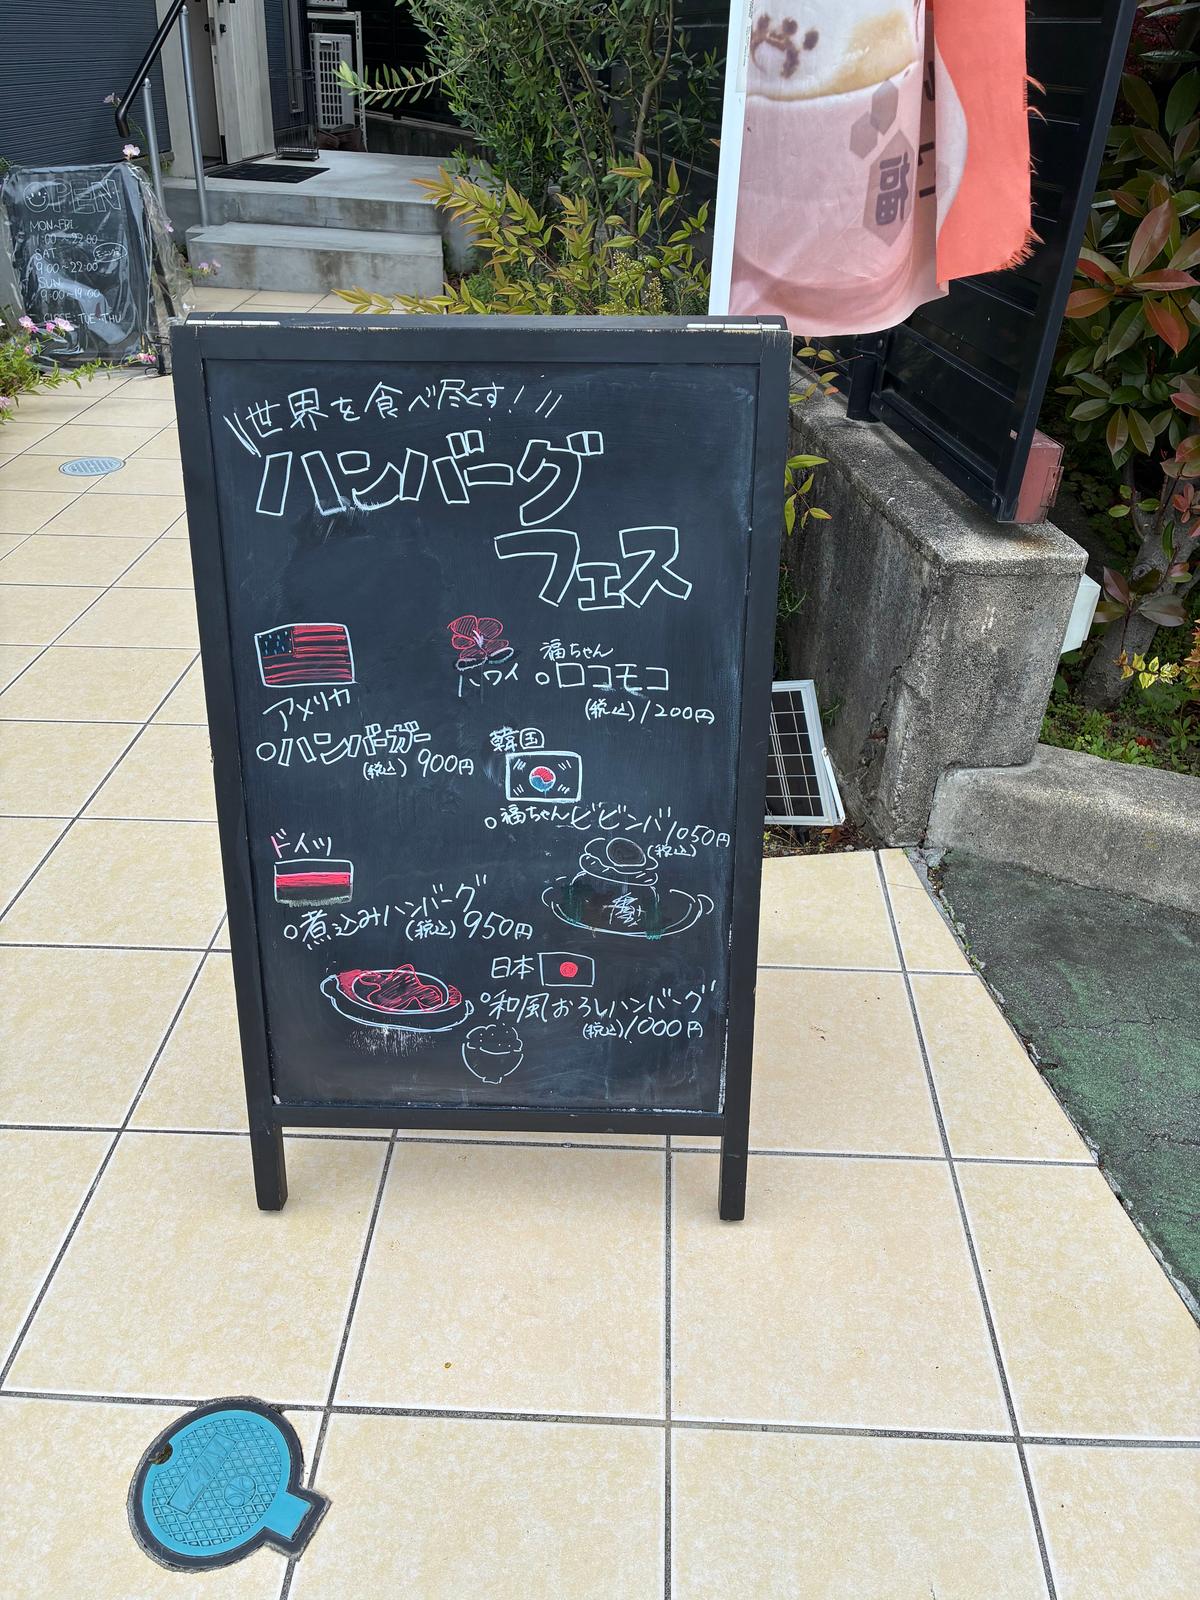 OPEN
MON~FRI
11:00~22:00
SAT
9:00~22:00
SUN
9:00~19:00
CLOSE:TUE・THU
福
世界を食べ尽くす!
ハンバーグ
フェス
アメリカ
ハンバーガー
(税込)900円
ハワイ
福ちゃん
ロコモコ
(税込)1200円
韓国
福ちゃんビビンバ1050円
(税込)
ドイツ
煮込みハンバーグ
(税込)950円
日本
和風おろしハンバーグ
(税込)1000円